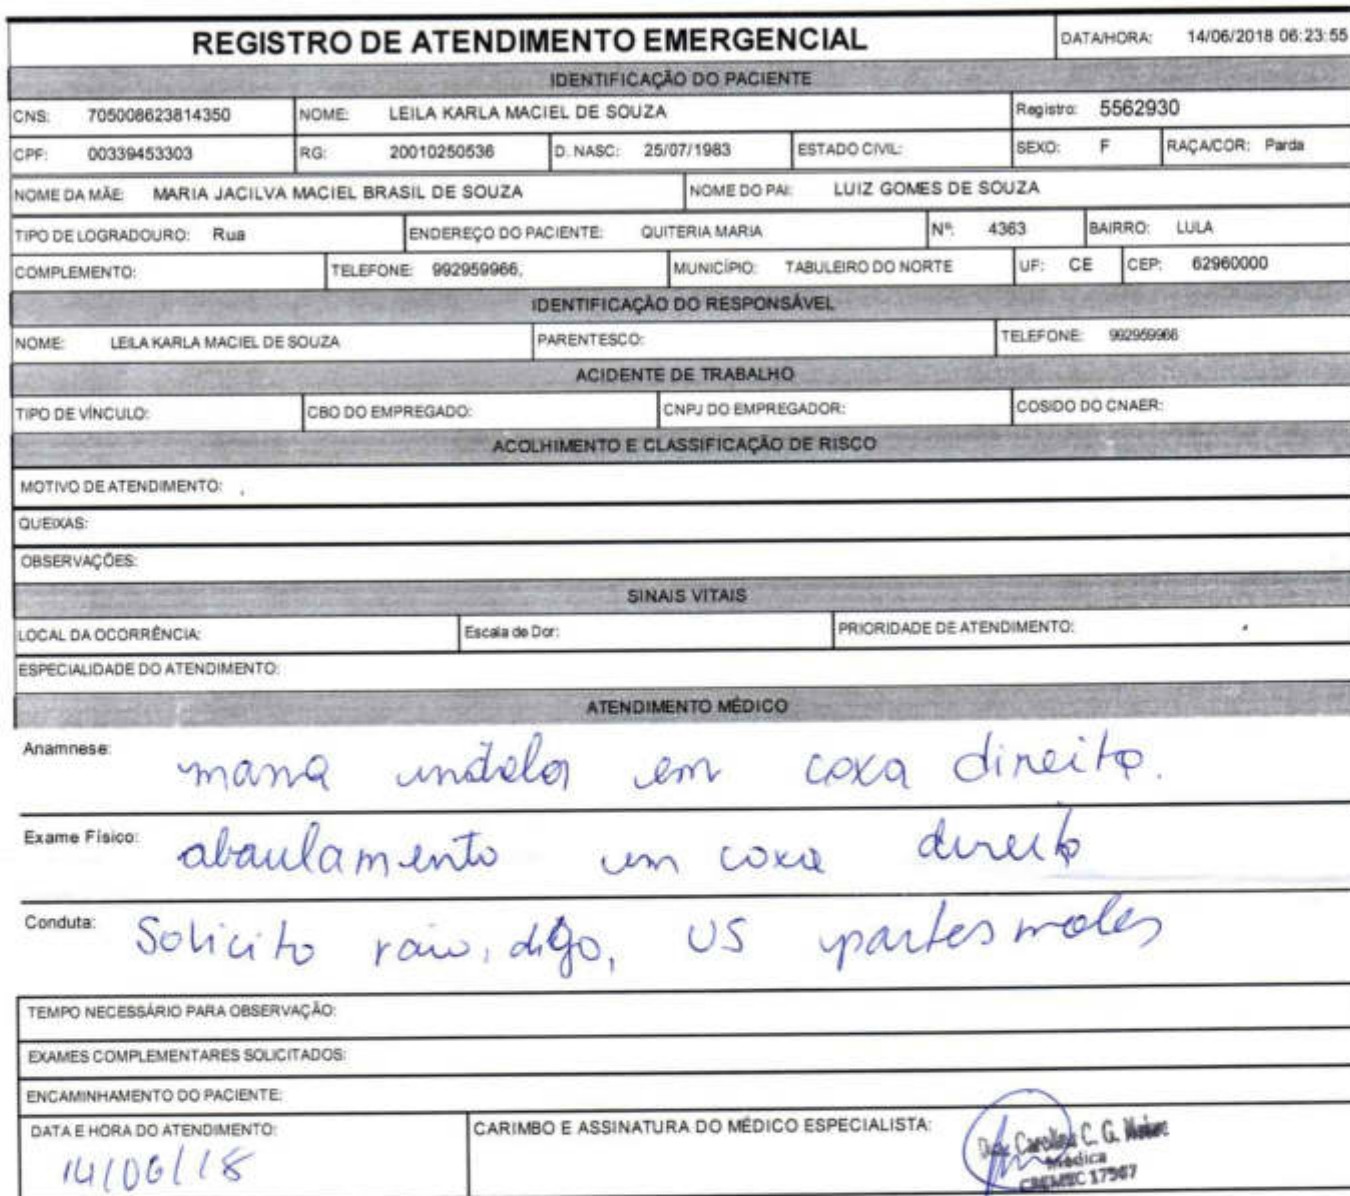 REGISTRO DE ATENDIMENTO EMERGENCIAL DATA/HORA: 14/06/2018 06:23:55
IDENTIFICAÇÃO DO PACIENTE
CNS: 705008623814350 NOME: LEILA KARLA MACIEL DE SOUZA Registro: 5562930
CPF: 00339453303 RG: 20010250536 D. NASC: 25/07/1983 ESTADO CIVIL: SEXO: F RAÇA/COR: Parda
NOME DA MÃE: MARIA JACILVA MACIEL BRASIL DE SOUZA NOME DO PAI: LUIZ GOMES DE SOUZA
TIPO DE LOGRADOURO: Rua ENDEREÇO DO PACIENTE: QUITERIA MARIA Nº: 4363 BAIRRO: LULA
COMPLEMENTO: TELEFONE: 992959966, MUNICÍPIO: TABULEIRO DO NORTE UF: CE CEP: 62960000
IDENTIFICAÇÃO DO RESPONSÁVEL
NOME: LEILA KARLA MACIEL DE SOUZA PARENTESCO: TELEFONE: 992959966
ACIDENTE DE TRABALHO
TIPO DE VÍNCULO: CBO DO EMPREGADO: CNPJ DO EMPREGADOR: COSIDO DO CNAER:
ACOLHIMENTO E CLASSIFICAÇÃO DE RISCO
MOTIVO DE ATENDIMENTO: ,
QUEIXAS:
OBSERVAÇÕES:
SINAIS VITAIS
LOCAL DA OCORRÊNCIA: Escala de Dor: PRIORIDADE DE ATENDIMENTO:
ESPECIALIDADE DO ATENDIMENTO:
ATENDIMENTO MÉDICO
Anamnese: massa indolor em coxa direita.
Exame Físico: abaulamento em coxa direita
Conduta: Solicito raio, digo, US partes moles
TEMPO NECESSÁRIO PARA OBSERVAÇÃO:
EXAMES COMPLEMENTARES SOLICITADOS:
ENCAMINHAMENTO DO PACIENTE:
DATA E HORA DO ATENDIMENTO: CARIMBO E ASSINATURA DO MÉDICO ESPECIALISTA:
14/06/18
C. G.
Médica
17567